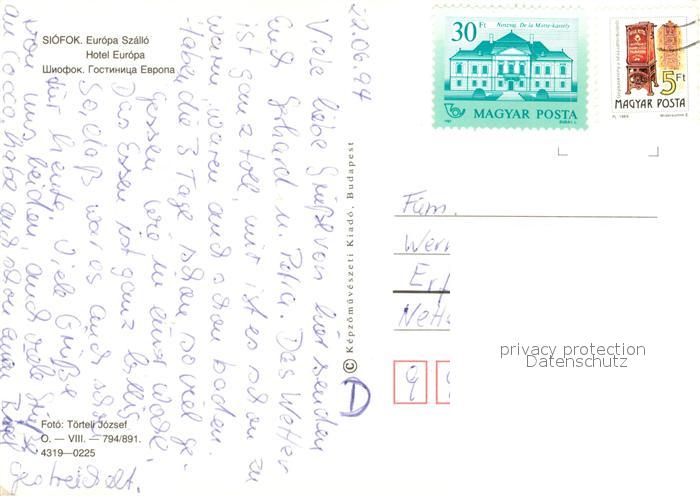 SIÓFOK. Európa Szálló
Hotel Európa
Шиофок. Гостиница Европа
22.06.94
Viele liebe Grüße von hier senden
Euch Gerhard u. Petra. Das Wetter
ist ganz toll, mir ist es schon zu
warm, waren auch schon baden.
Habe die 3 Tage schon so viel ge-
gessen wie in einer Woche,
Das Essen ist ganz billig.
So, das war es auch schon
für heute. Viele Grüße
von uns beiden, auch viele Grüße
an habe auch schon einen
gestreichelt.
Foto: Törteli József
O. — VIII. — 794/891.
4319—0225
© Képzőművészeti Kiadó, Budapest
Noszvaj. De la Motte-kastély
30 Ft
MAGYAR POSTA
5 Ft
MAGYAR POSTA
Fam.
Wern
Erf
Nett
9
D
privacy protection
Datenschutz